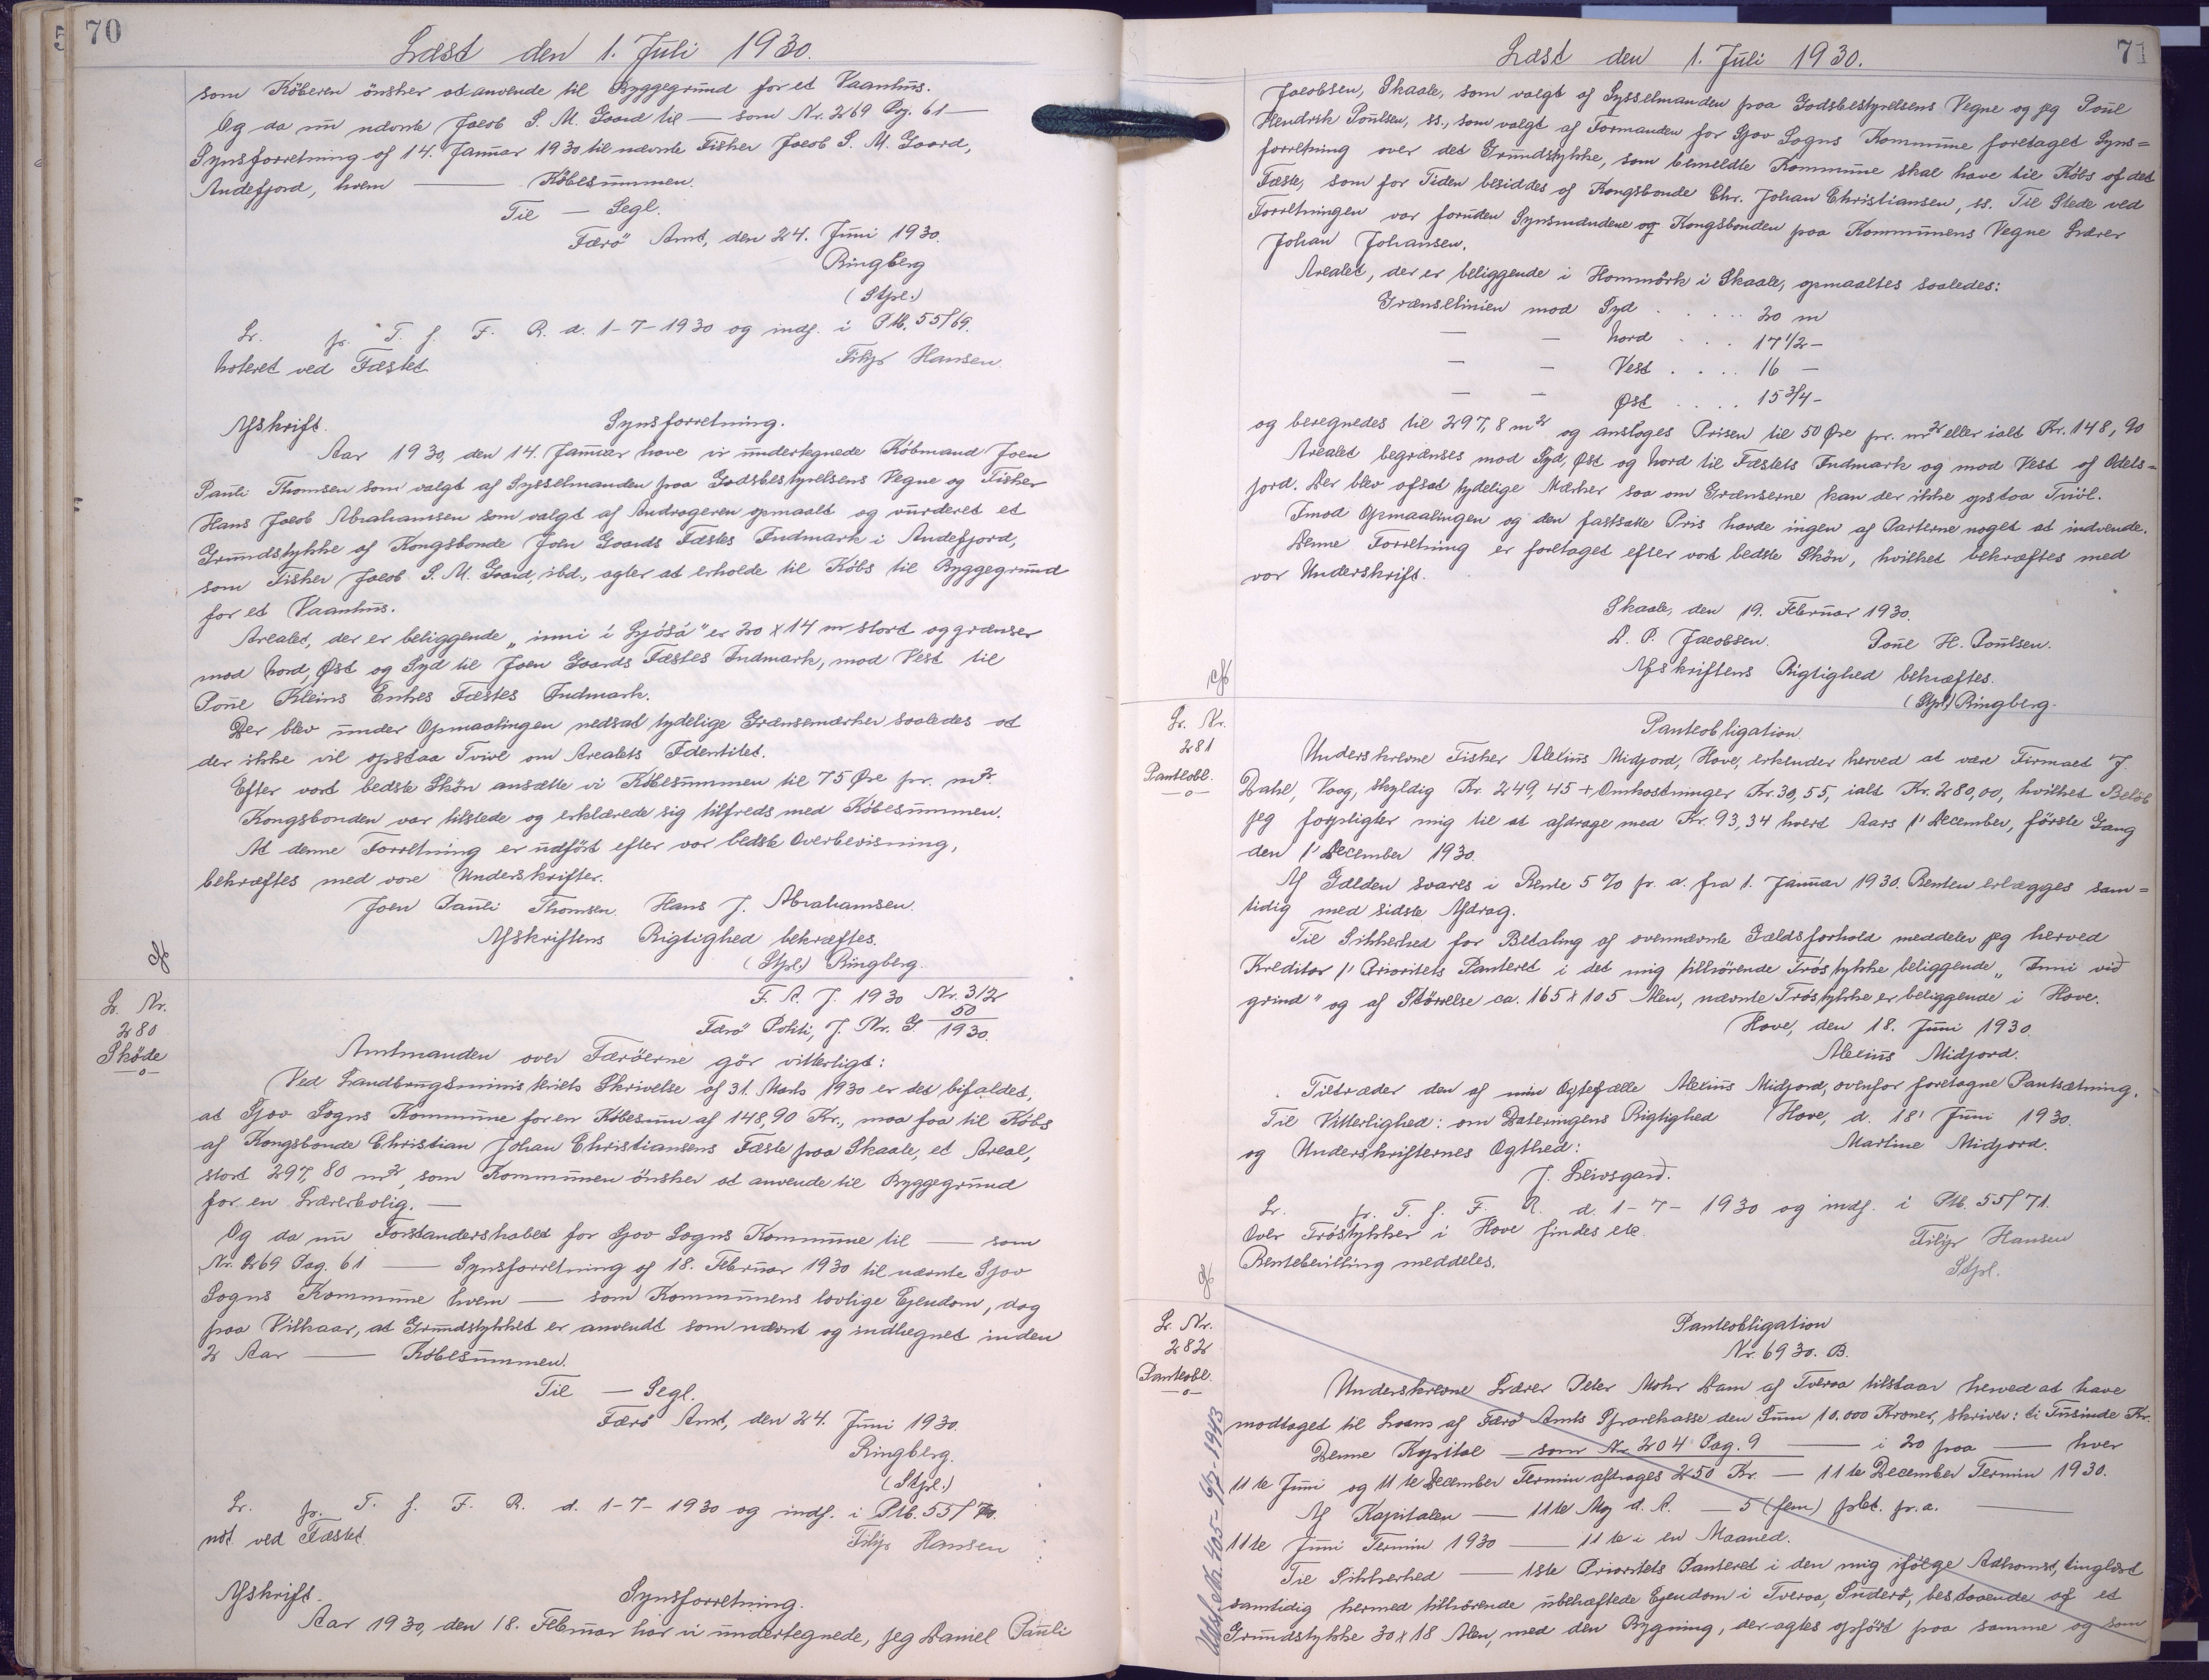 70
Læst den 1. Juli 1930.
som Köberen önsker at anvende til Byggegrund for et Vaanhus.
Og da nu nævnte Jacob S. M. Gaard til — som Nr. 269 Pg. 61 —
Synsforretning af 14. Januar 1930 til nævnte Fisker Jacob S. M. Gaard,
Andefjord, hvem — Købesummen.
Til — Segl.
Færö Amt, den 24. Juni 1930.
Ringberg
(Stpl.)
Lr. pr. T. f. F. R. d. 1-7-1930 og indf. i Ptb. 55/69.
Noteret ved Fæstet
Filip Hansen.
Afskrift. Synsforretning.
Aar 1930, den 14. Januar have vi undertegnede Købmand Joen
Pauli Thomsen som valgt af Sysselmanden paa Godsbestyrelsens Vegne og Fisker
Hans Jacob Abrahamsen som valgt af Andrageren opmaalt og vurderet et
Grundstykke af Kongsbonde Joen Gaards Fæstes Indmark i Andefjord,
som Fisker Jacob S. M. Gaard, ibd., agter at erholde til Købs til Byggegrund
for et Vaanhus.
Arealet, der er beliggende „inni í Gjósá" er 20 x 14 m stort og grænser
mod Nord, Øst og Syd til Joen Gaards Fæstes Indmark, mod Vest til
Poul Kleins Enkes Fæstes Indmark.
Der blev under Opmaalingen nedsat tydelige Grænsemærker saaledes at
der ikke vil opstaa Tvivl om Arealets Identitet.
Efter vort bedste Skön ansætte vi Købesummen til 75 Øre pr. m².
Kongsbonden var tilstede og erklærede sig tilfreds med Købesummen.
At denne Forretning er udført efter vor bedste Overbevisning,
bekræftes med vore Underskrifter.
Joen Pauli Thomsen. Hans J. Abrahamsen.
Afskriftens Rigtighed bekræftes.
(Stpl.) Ringberg.
F. A. J. 1930 Nr. 312
Færö Politi, J. Nr. G 50/1930.
Lr. Nr.
280
Sköde
—o—
Amtmanden over Færöerne gör vitterligt:
Ved Landbrugsministeriets Skrivelse af 31. Marts 1930 er det bifaldet,
at Gjov Sogns Kommune for en Købesum af 148,90 Kr., maa faa til Købs
af Kongsbonde Christian Johan Christiansens Fæste paa Skaale, et Areal,
stort 297,80 m², som Kommunen önsker at anvende til Byggegrund
for en Lærerbolig. —
Og da nu Forstanderskabet for Gjov Sogns Kommune til — som
Nr. 269 Pag. 61 — Synsforretning af 18. Februar 1930 til nævnte Gjov
Sogns Kommune hvem — som Kommunens lovlige Ejendom, dog
paa Vilkaar, at Grundstykket er anvendt som nævnt og indhegnet inden
2 Aar — Købesummen.
Til — Segl.
Færö Amt, den 24. Juni 1930.
Ringberg.
(Stpl.)
Lr. pr. T. f. F. R. d. 1-7-1930 og indf. i Ptb. 55/70.
not ved Fæstet.
Filip Hansen
Afskrift. Synsforretning.
Aar 1930, den 18. Februar har vi undertegnede, jeg Daniel Pauli
71
Læst den 1. Juli 1930.
Jacobsen, Skaale, som valgt af Sysselmanden paa Godsbestyrelsens Vegne og jeg Poul
Hendrik Poulsen, ss., som valgt af Formanden for Gjov Sogns Kommune foretaget Syns=
forretning over det Grundstykke, som bemeldte Kommune skal have til Købs af det
Fæste, som for Tiden besiddes af Kongsbonde Chr. Johan Christiansen, ss. Til Stede ved
Forretningen var foruden Synsmændene og Kongsbonden paa Kommunens Vegne Lærer
Johan Johansen.
Arealet, der er beliggende i Hommörk i Skaale, opmaaltes saaledes:
Grænselinien mod Syd . . . . . 20 m
— — Nord . . . 17 1/2 —
— — Vest . . . . 16 —
— — Øst . . . . 15 3/4 —
og beregnedes til 297,8 m² og ansloges Prisen til 50 Øre pr. m² eller ialt Kr. 148,90
Arealet begrænses mod Syd, Øst og Nord til Fæstets Indmark og mod Vest af Odels=
jord. Der blev afsat tydelige Mærker saa om Grænserne kan der ikke opstaa Tvivl.
Imod Opmaalingen og den fastsatte Pris havde ingen af Parterne noget at indvende.
Denne Forretning er foretaget efter vort bedste Skön, hvilket bekræftes med
vor Underskrift.
Skaale, den 19. Februar 1930.
D. P. Jacobsen. Poul H. Poulsen.
Afskriftens Rigtighed bekræftes.
(Stpl) Ringberg.
Lr. Nr.
281
Panteobl.
—o—
Panteobligation.
Underskrevne Fisker Alexius Midjord, Hove, erkender herved at være Firmaet J.
Dahl, Vaag, skyldig Kr. 249,45 + Omkostninger Kr. 30,55, ialt Kr. 280,00, hvilket Beløb
jeg forpligter mig til at afdrage med Kr. 93,34 hvert Aars 1' December, første Gang
den 1' December 1930.
Af Gælden svares i Rente 5 % p. a. fra 1. Januar 1930. Renten erlægges sam=
tidig med sidste Afdrag.
Til Sikkerhed for Betaling af ovennævnte Gældsforhold meddeler jeg herved
Kreditor 1' Prioritets Panteret i det mig tilhörende Tröstykke beliggende „Inni við
grind" og af Størrelse ca. 165 x 105 Alen, nævnte Tröstykke er beliggende i Hove.
Hove, den 18. Juni 1930
Alexius Midjord.
Tiltræder den af min Ægtefælle Alexius Midjord, ovenfor foretagne Pantsætning.
Til Vitterlighed: om Dateringens Rigtighed Hove, d. 18' Juni 1930.
og Underskrifternes Ægthed: Martine Midjord.
J. Leivsgarð.
Lr. pr. T. f. F. R. d. 1-7-1930 og indf. i Ptb. 55/71.
Over Tröstykker i Hove findes etc.
Filip Hansen
Rentebevilling meddeles.
Stpl.
Lr. Nr.
282
Panteobl.
—o—
Udslettet 405-9/2-1943
Panteobligation
Nr. 6930. B.
Underskrevne Lærer Peter Mohr Dam af Tveraa tilstaar herved at have
modtaget til Laans af Færö Amts Sparekasse den Sum 10.000 Kroner, skriver: ti Tusinde Kr.
Denne Kapital — som Nr. 204 Pag. 9 — i 20 paa — hver
11te Juni og 11te December Termin afdrages 250 Kr. — 11te December Termin 1930.
Af Kapitalen — 11te Maj d. A. — 5 (fem) pCt. p. a. —
11te Juni Termin 1930 — 11te i en Maaned.
Til Sikkerhed — 1ste Prioritets Panteret i den mig ifølge Adkomst, tinglæst
samtidig hermed tilhørende ubehæftede Ejendom i Tveraa, Suderö, bestaaende af et
Grundstykke 30 x 18 Alen, med den Bygning, der agtes opført paa samme og som